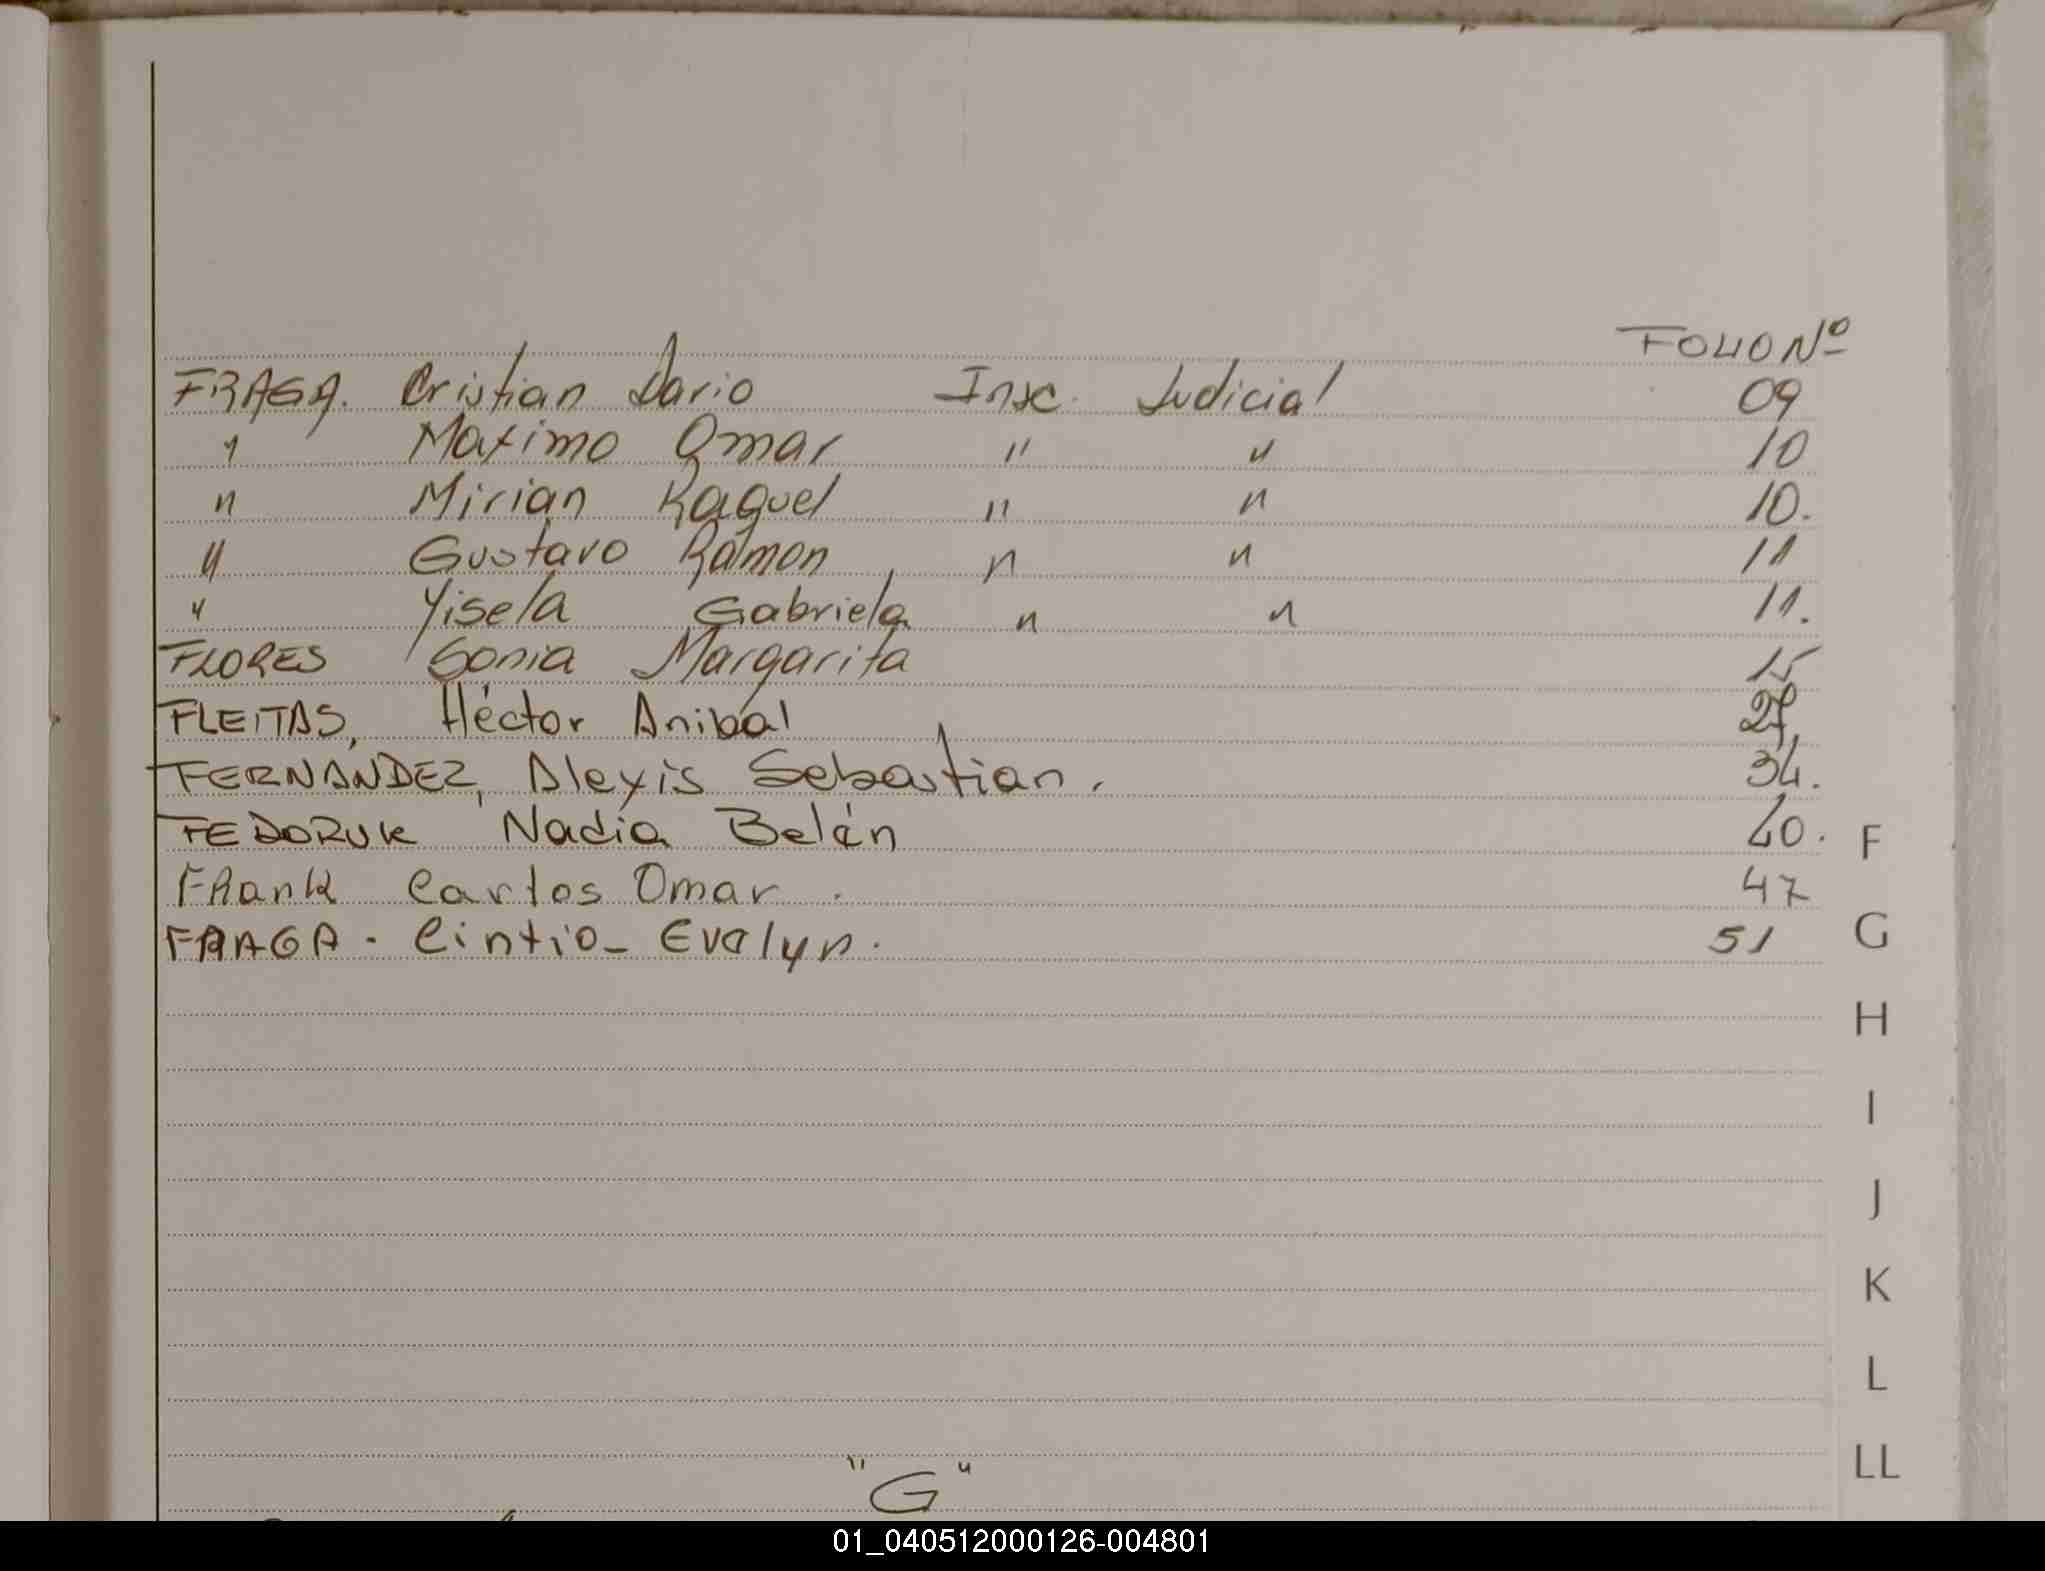 FOLIO Nº
FRAGA. Cristian Dario Insc. Judicial 09
" Maximo Omar " " 10
" Mirian Raquel " " 10.
" Gustavo Ramon " " 11
" Yisela Gabriela " " 11.
FLORES Sonia Margarita 15
FLEITAS, Héctor Anibal
FERNANDEZ, Alexis Sebastian. 34.
FEDORUK Nadia Belén 40.
FRanK Carlos Omar. 47
FRAGA. Cintia_ Evelyn. 51
F
G
H
I
J
K
L
LL
"G"
01_040512000126-004801